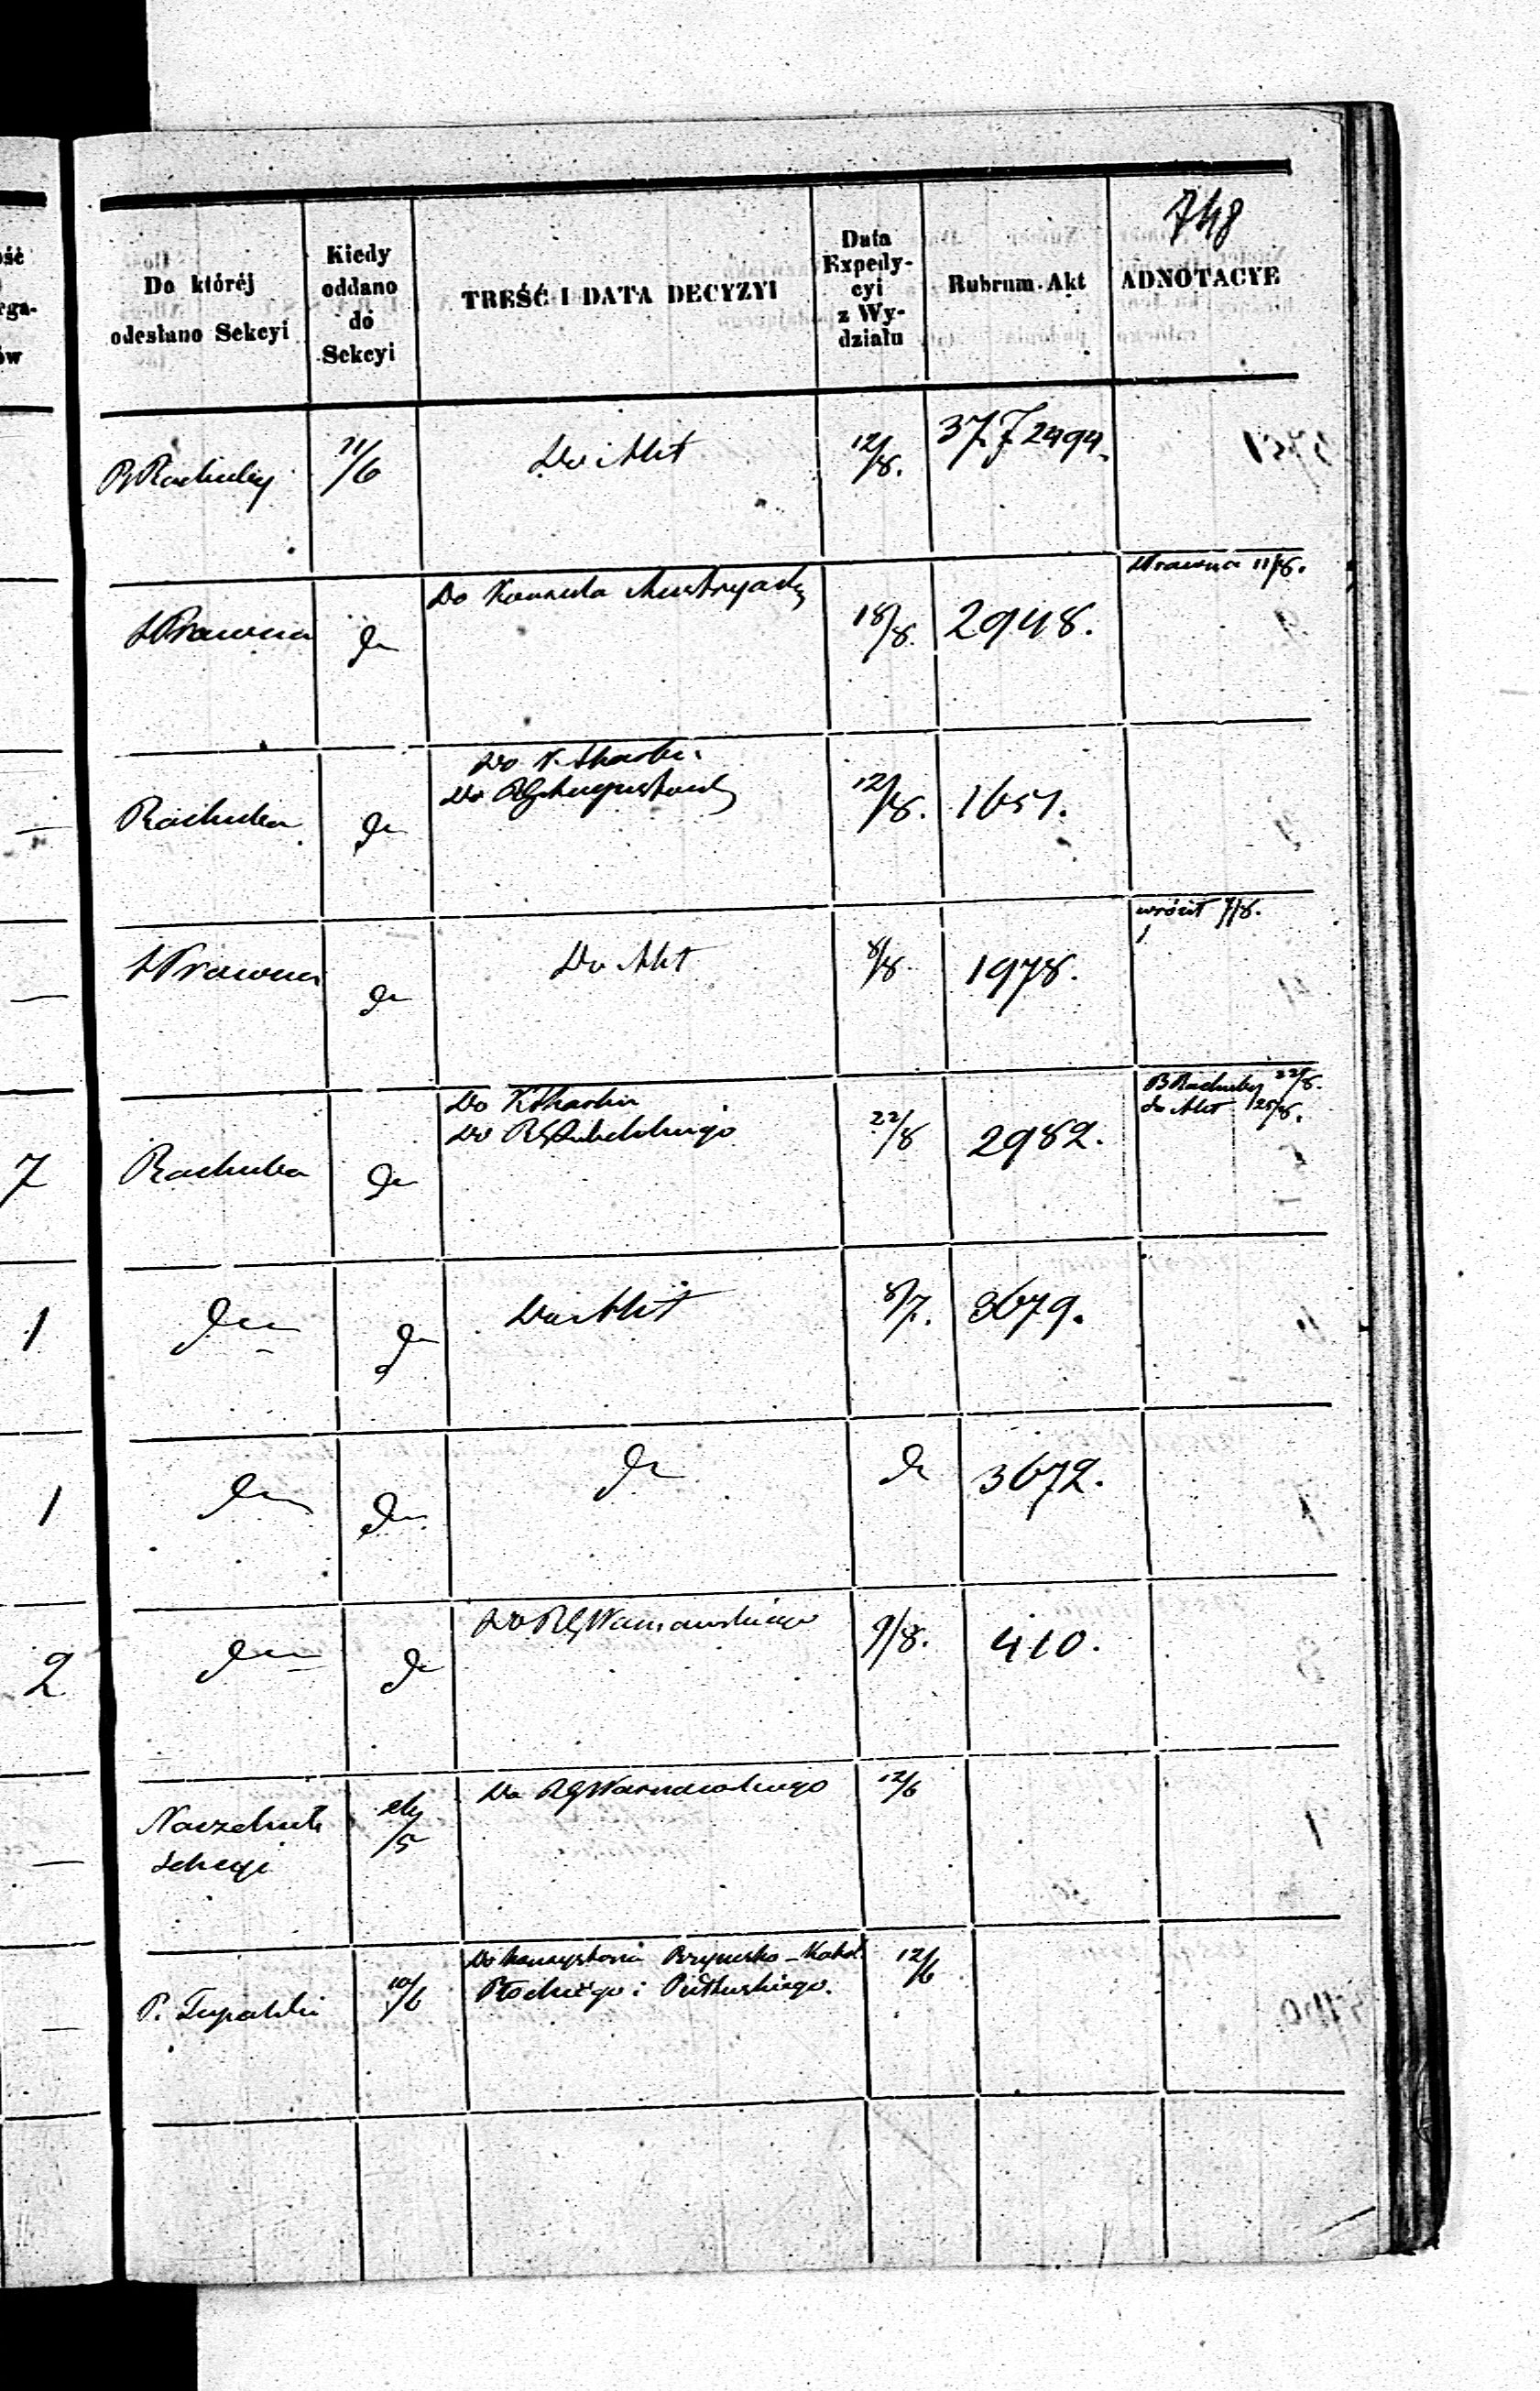 748
Do któréj odesłano Sekcyi
Kiedy oddano do Sekcyi
TREŚĆ I DATA DECYZYI
Data Expedycyi z Wydziału
Rubrum Akt
ADNOTACYE
B Rachuby 11/6 Do Akt 12/8. 2494.
S Prawna do Do Konsula Austryack 18/8. 2948. Prawna 11/8.
Rachuba do Do K. Skarbu 12/8. 1651.
Do RG Augustows
S Prawna do Do Akt 8/8. 1978. wrócił 7/8.
7 Rachuba do Do K Skarbu 22/8 2982. B Rachuby 22/8.
Do RG Lubelskiego do Akt 25/8.
1 do do Do Akt 8/7. 3679.
1 do do do do 3672.
2 do do Do RG Warszawskiego 9/8. 410.
Naczelnik Sekcyi /5 Do RG Warszawskiego 12/6
P. 10/6 Do Konsystorza Rzymsko-Katol 12/6
Płockiego i Pułtuskiego.